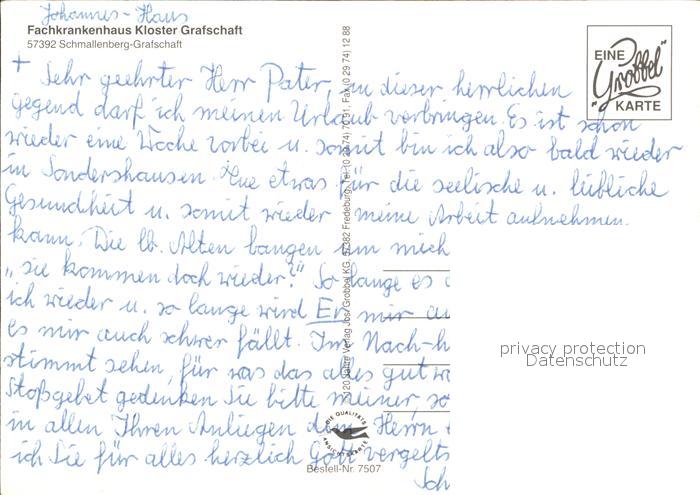 Johannes-Haus
Fachkrankenhaus Kloster Grafschaft
57392 Schmallenberg-Grafschaft
+ Sehr geehrter Herr Pater, in dieser herrlichen
gegend darf ich meinen Urlaub verbringen. Es ist schon
wieder eine Woche vorbei u. somit bin ich also bald wieder
in Sondershausen. Tue etwas für die seelische u. leibliche
Gesundheit u. somit wieder meine Arbeit aufnehmen.
kann. Die lb. Alten bangen um mich
„sie kommen doch wieder?" So lange es
ich wieder u. so lange wird Er mir
es mir auch schwer fällt. Im Nach-h
stimmt sehen, für was das alles gut
Stoßgebet gedenken Sie bitte meiner, so
in allen Ihren Anliegen dem Herrn
ich Sie für alles herzlich Gott vergelts
Sch
EINE
"Grobbel"
KARTE
Verlag Jos. Grobbel KG, 57382 Fredeburg, Tel. (0 29 74) 70 91, Fax (0 29 74) 12 88
DIE QUALITÄTS
ANSICHTSKARTE
Bestell-Nr. 7507
privacy protection
Datenschutz